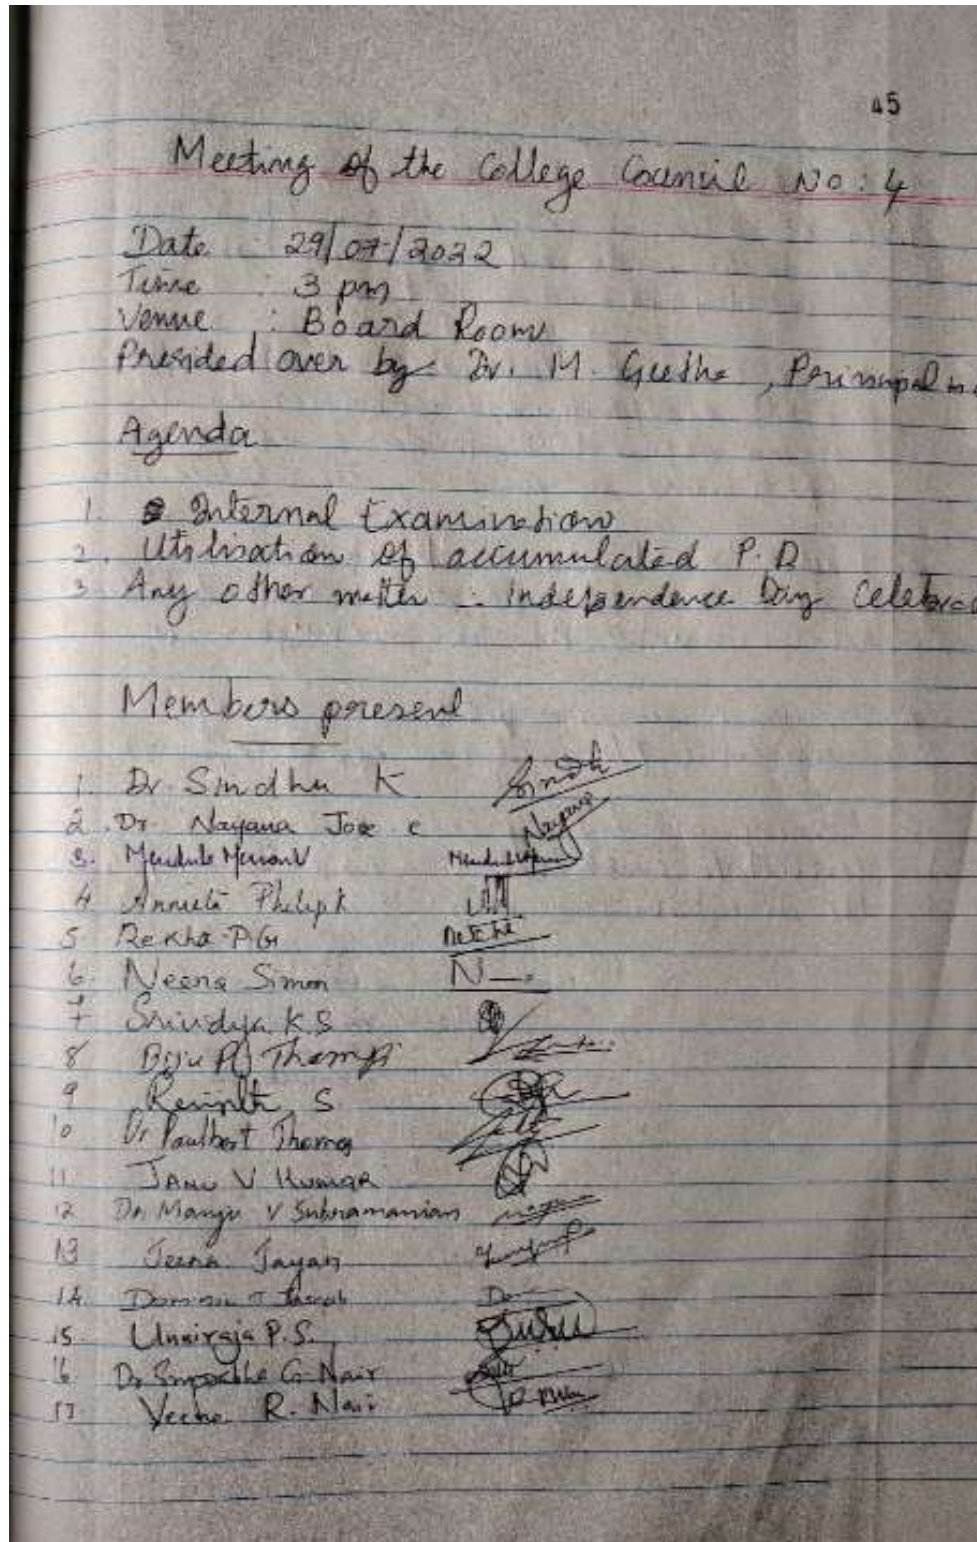 45
Meeting of the College Council No: 4
Date : 29/07/2022
Time : 3 pm
Venue : Board Room
Presided over by Dr. M. Geetha, Principal
Agenda
1. Internal Examination
2. Utilisation of accumulated P.D
3 Any other matter - Independence Day Celebra
Members present
1. Dr. Sindhu K Sindh
2. Dr. Nayana Jose C Nayana
3.
4 Annieta Philip K
5 Rekha P G Rekha
6. Neena Simon N
7 Srividya K S
8 Biju Thampi
9 S
10 Dr Paulbert Thomas
11 JANU V KUMAR
12 Dr. Manju V Subramanian
13 Jeena Jayan
14. J
15 Unniraja P.S.
16 Dr G Nair
17 R. Nair